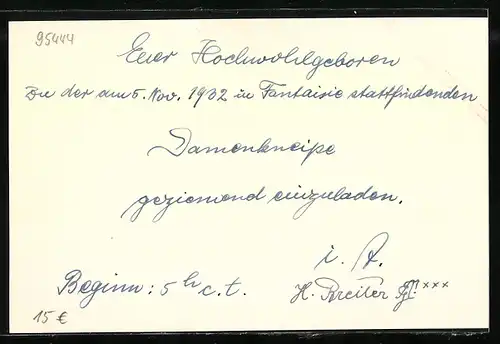 95444
Euer Hochwohlgeboren
Zu der am 5. Nov. 1932 in Fantaisie stattfindenden
Damenkneipe
geziemend einzuladen.
i. A.
Beginn: 5 h c.t.
H. Breiter xxx
15 €